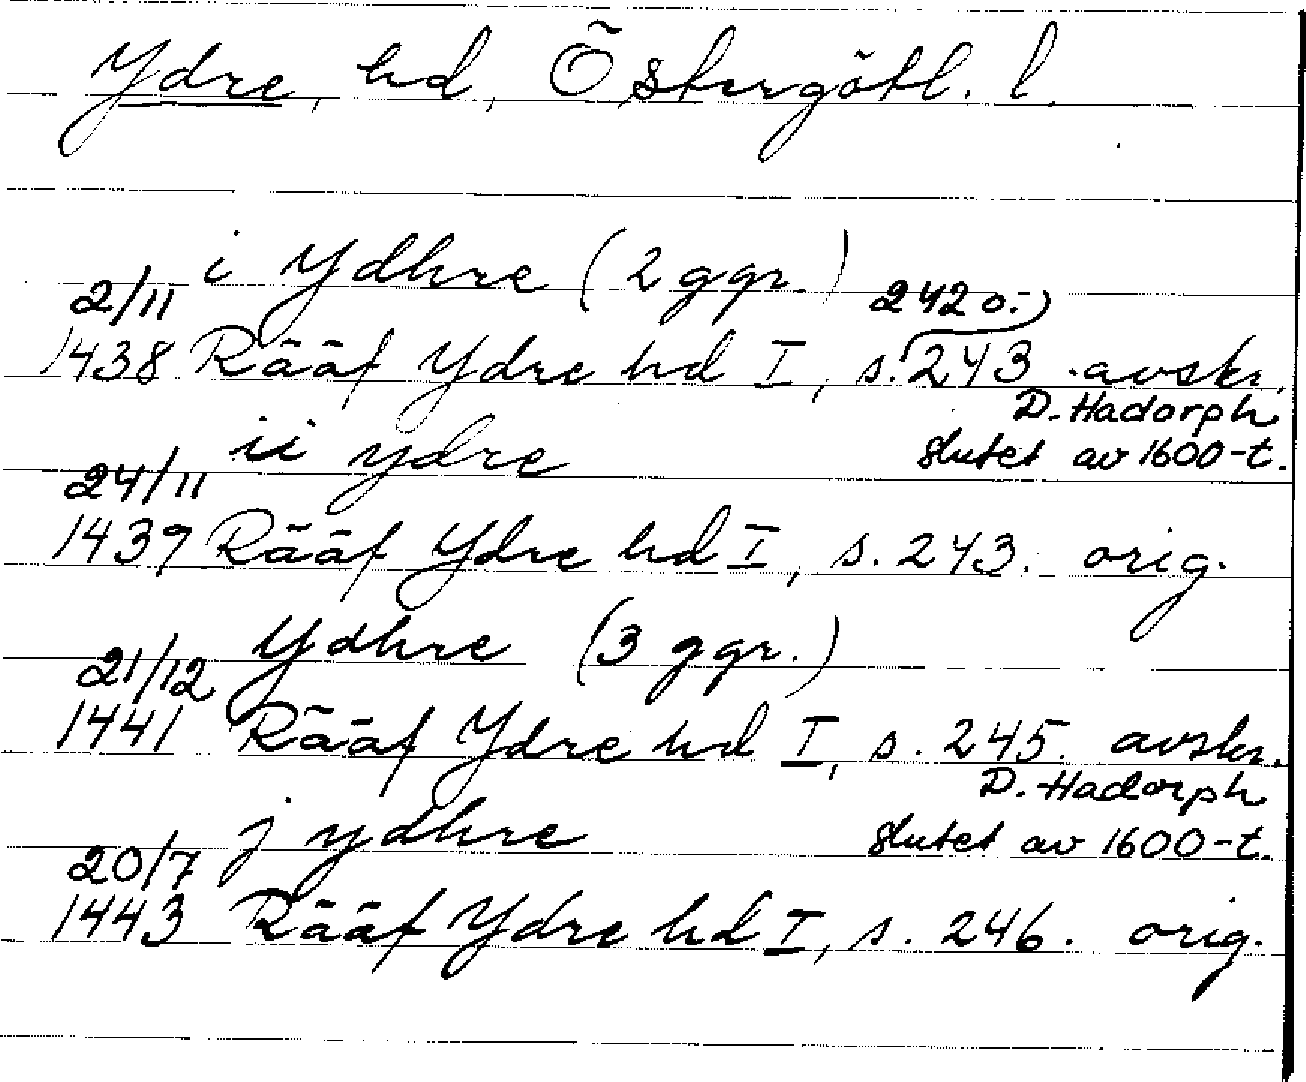 Ydre, hd, Östergötl. l.
i Ydhre (2 ggr.) 242 o.
2/11
1438 Rääf Ydre hd I, s. 243 avskr.
D. Hadorph
ii ydre slutet av 1600-t.
24/11
1439 Rääf Ydre hd I, s. 243. orig.
Ydhre (3 ggr.)
21/12
1441 Rääf Ydre hd I, s. 245. avskr.
D. Hadorph
j ydhre slutet av 1600-t.
20/7
1443 Rääf Ydre hd I, s. 246. orig.